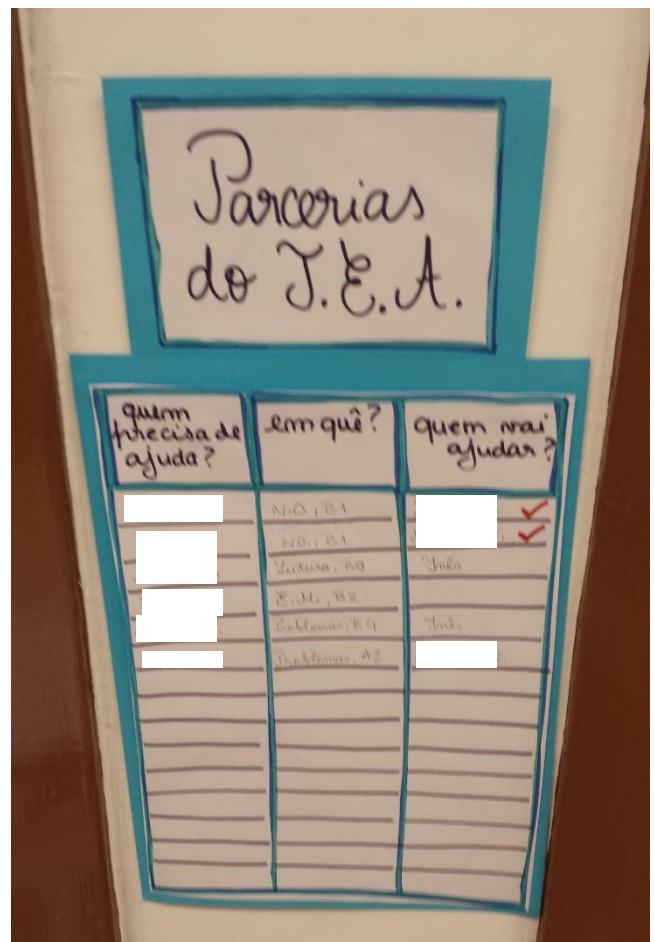 Parcerias
do T.E.A.
quem precisa de ajuda?
em quê?
quem vai ajudar?
N.O., B1
N.O., B1
Leitura, B9 Inês
E.M., B2
Problemas, B4 Inês
Problemas, A2